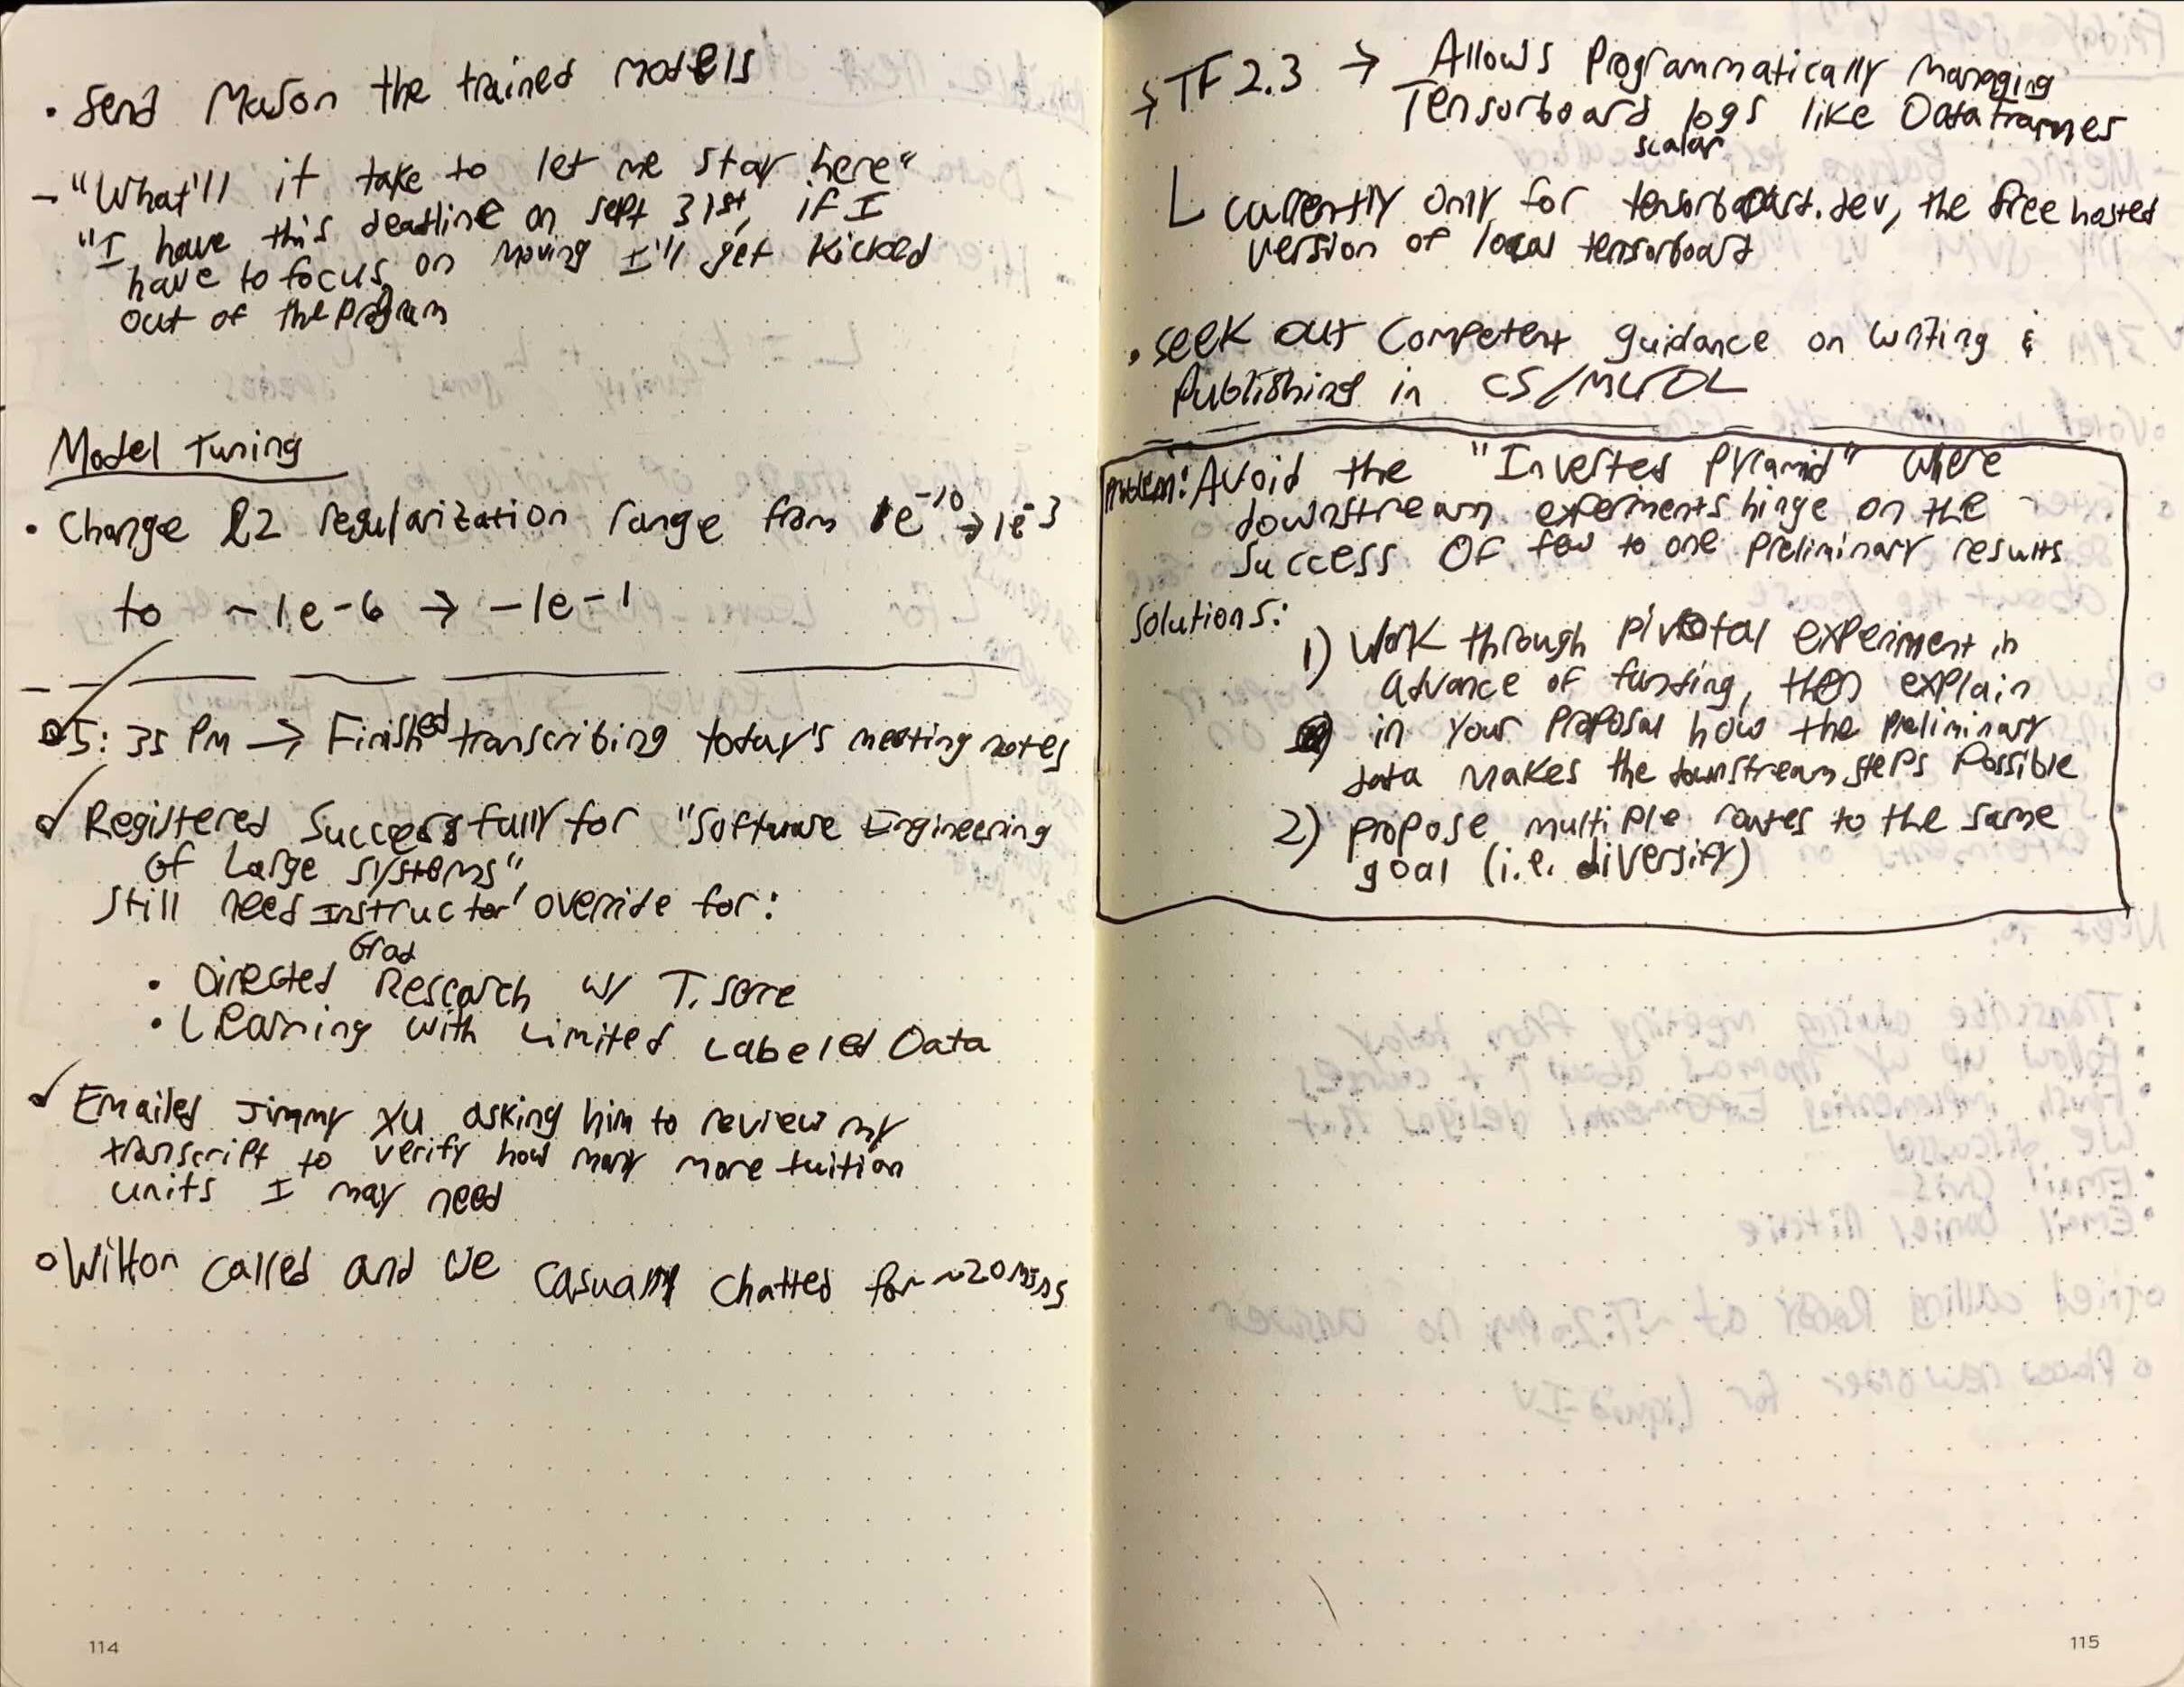 • Send Mason the trained models
– "What'll it take to let me stay here"
"I have this deadline on Sept 31st, if I
have to focus on moving I'll get kicked
out of the program
Model Tuning
• Change l2 regularization range from 1e^-10 → 1e^-3
to ~1e-6 → ~1e-1
5:35 PM → Finished transcribing today's meeting notes
✓ Registered Successfully for "Software Engineering
of Large Systems"
Still need Instructor override for:
• Directed Grad Research w/ T. Serre
• Learning with Limited Labeled Data
✓ Emailed Jimmy Xu asking him to review my
transcript to verify how many more tuition
units I may need
○ Wilton called and we casually chatted for ~20 mins
114
↳ TF 2.3 → Allows Programmatically managing
Tensorboard logs like Dataframes
scalar
L currently only for tensorboard.dev, the free hosted
version of local tensorboard
• Seek out competent guidance on writing &
Publishing in CS/ML/DL
Problem: Avoid the "Inverted Pyramid" where
downstream experiments hinge on the
success of few to one preliminary results
Solutions:
1) Work through pivotal experiment in
advance of funding, then explain
in your proposal how the preliminary
data makes the downstream steps possible
2) propose multiple routes to the same
goal (i.e. diversify)
115